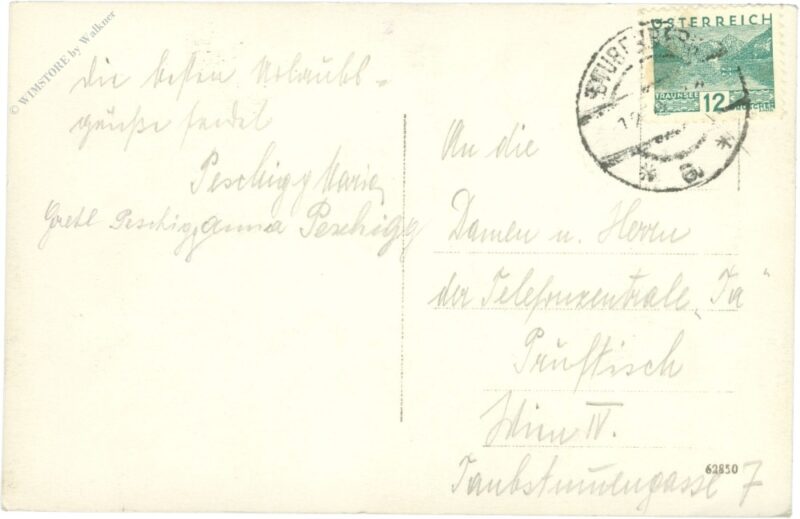 © WIMSTORE by Walkner
die besten Urlaubs-
grüße sendet
Peschigg Marie
Gretl Peschigg, Anna Peschigg
ÖSTERREICH
TRAUNSEE
12
GROSCHEN
* a *
An die
Damen u. Herrn
der Telefonzentrale „Ta"
Prüftisch
Wien IV.
Taubstummengasse 7
62850